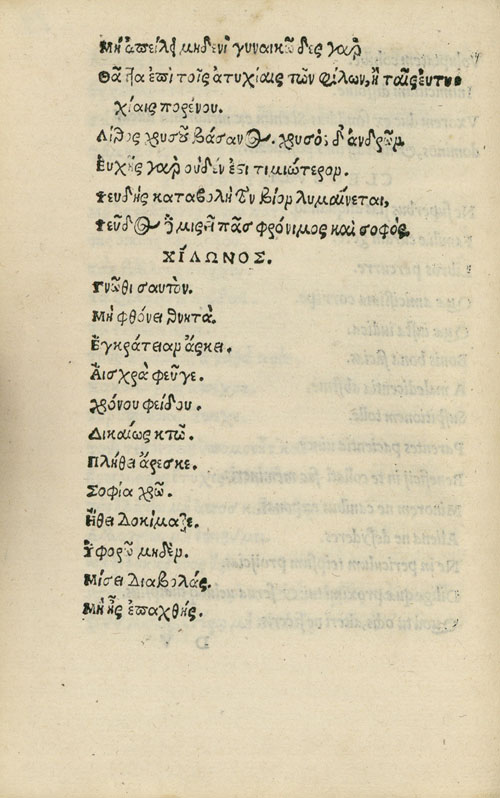 Μὴ ἀπείλει μηδενὶ γυναικῶδες γαρ
Θᾶττα ἐπὶ τοῖς ἀτυχίαις τῶν φίλων, ἢ ταῖς εὐτυ
χίαις πορένου.
Λίθος χρυσοῦ βάσανος. χρυσὸς δ' ἀνδρῶμ.
Εὐχῆς γαρ οὐδέν ἐστι τιμιώτερομ.
Ψευδὴς καταβολὴ τὸν βίομ λυμαίνεται,
Ψεῦδος μισεῖ πᾶς φρόνιμος καὶ σοφός.
ΧΙΛΩΝΟΣ.
Γνῶθι σαυτὸν.
Μὴ φθόνει θνητὰ.
Ἐγκράτειαμ ἄσκει.
Αἰσχρὰ φεῦγε.
Χρόνου φείδου.
Δικαίως κτῶ.
Πλήθει ἄρεσκε.
Σοφία χρῶ.
Ἤθει δοκίμαζε.
Ὑφορῶ μηδέμ.
Μίσει διαβολάς.
Μὴ ᾖς ἐπαχθής.